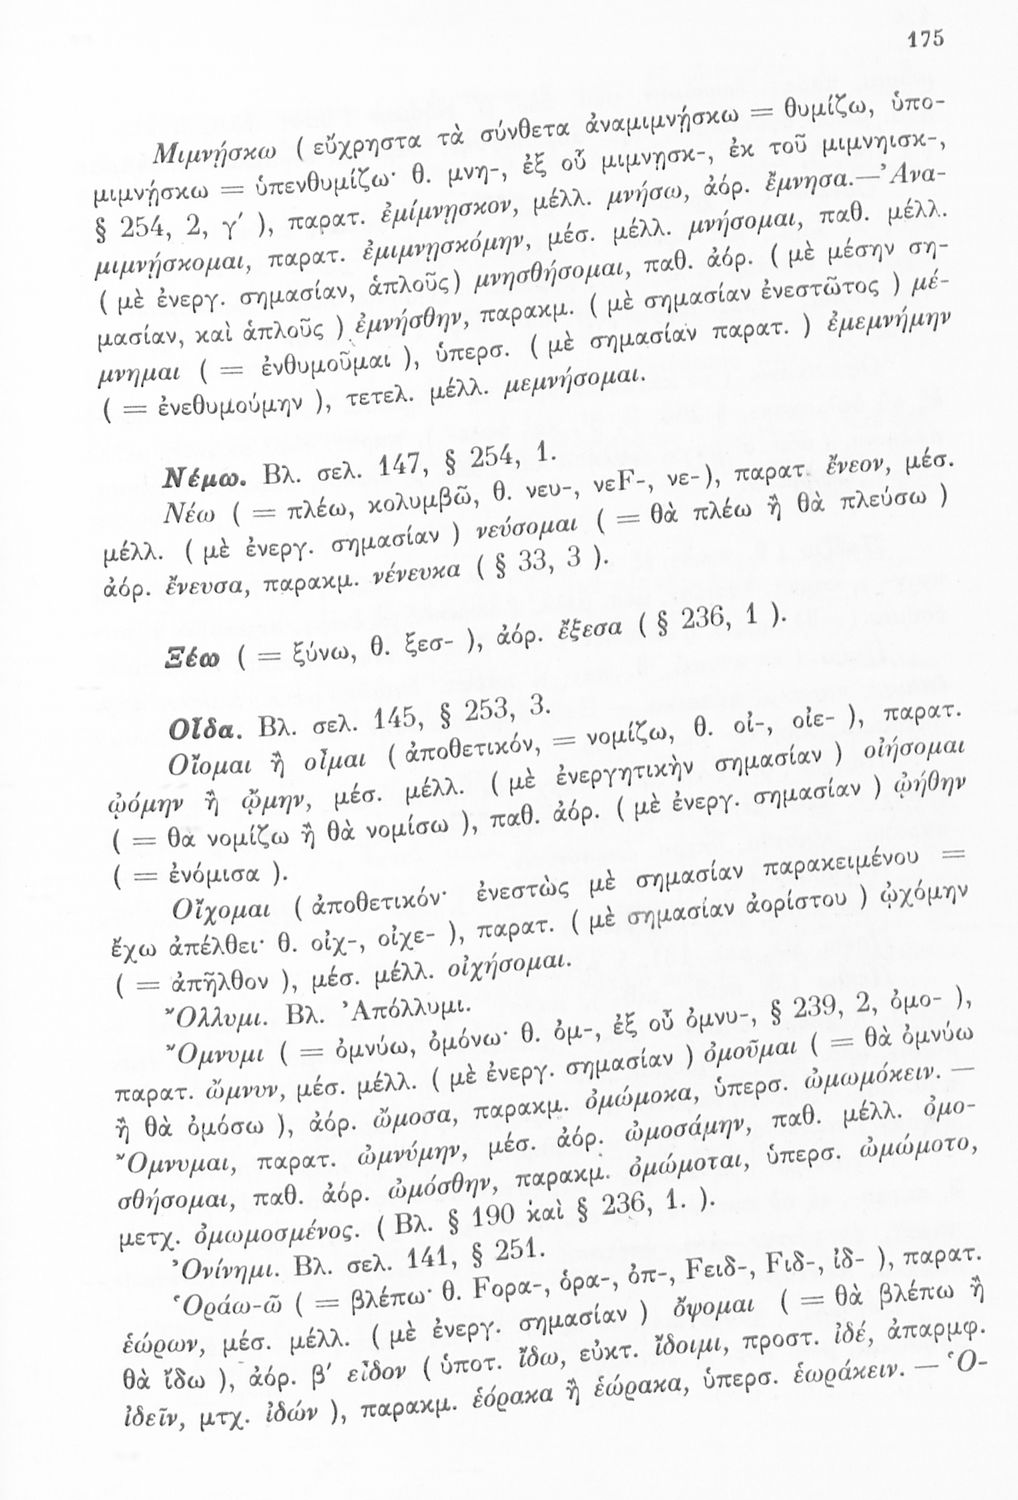 175
Μιμνῄσκω ( εὔχρηστα τὰ σύνθετα ἀναμιμνῄσκω = θυμίζω, ὑπο-
μιμνῄσκω = ὑπενθυμίζω· θ. μνη-, ἐξ οὗ μιμνησκ-, ἐκ τοῦ μιμνηισκ-,
§ 254, 2, γ′ ), παρατ. ἐμίμνῃσκον, μέλλ. μνήσω, ἀόρ. ἔμνησα.—Ἀνα-
μιμνῄσκομαι, παρατ. ἐμιμνῃσκόμην, μέσ. μέλλ. μνήσομαι, παθ. μέλλ.
( μὲ ἐνεργ. σημασίαν, ἁπλοῦς) μνησθήσομαι, παθ. ἀόρ. ( μὲ μέσην ση-
μασίαν, καὶ ἁπλοῦς ) ἐμνήσθην, παρακμ. ( μὲ σημασίαν ἐνεστῶτος ) μέ-
μνημαι ( = ἐνθυμοῦμαι ), ὑπερσ. ( μὲ σημασίαν παρατ. ) ἐμεμνήμην
( = ἐνεθυμούμην ), τετελ. μέλλ. μεμνήσομαι.
Νέμω. Βλ. σελ. 147, § 254, 1.
Νέω ( = πλέω, κολυμβῶ, θ. νευ-, νεF-, νε-), παρατ. ἔνεον, μέσ.
μέλλ. ( μὲ ἐνεργ. σημασίαν ) νεύσομαι ( = θὰ πλέω ἢ θὰ πλεύσω )
ἀόρ. ἔνευσα, παρακμ. νένευκα ( § 33, 3 ).
Ξέω ( = ξύνω, θ. ξεσ- ), ἀόρ. ἔξεσα ( § 236, 1 ).
Οἶδα. Βλ. σελ. 145, § 253, 3.
Οἴομαι ἢ οἶμαι ( ἀποθετικόν, = νομίζω, θ. οἰ-, οἰε- ), παρατ.
ᾠόμην ἢ ᾤμην, μέσ. μέλλ. ( μὲ ἐνεργητικὴν σημασίαν ) οἰήσομαι
( = θα νομίζω ἢ θὰ νομίσω ), παθ. ἀόρ. ( μὲ ἐνεργ. σημασίαν ) ᾠήθην
( = ἐνόμισα ).
Οἴχομαι ( ἀποθετικόν· ἐνεστὼς μὲ σημασίαν παρακειμένου =
ἔχω ἀπέλθει· θ. οἰχ-, οἰχε- ), παρατ. ( μὲ σημασίαν ἀορίστου ) ᾠχόμην
( = ἀπῆλθον ), μέσ. μέλλ. οἰχήσομαι.
Ὄλλυμι. Βλ. Ἀπόλλυμι.
Ὄμνυμι ( = ὀμνύω, ὀμόνω· θ. ὀμ-, ἐξ οὗ ὀμνυ-, § 239, 2, ὀμο- ),
παρατ. ὤμνυν, μέσ. μέλλ. ( μὲ ἐνεργ. σημασίαν ) ὀμοῦμαι ( = θὰ ὀμνύω
ἢ θὰ ὀμόσω ), ἀόρ. ὤμοσα, παρακμ. ὀμώμοκα, ὑπερσ. ὠμωμόκειν. —
Ὄμνυμαι, παρατ. ὠμνύμην, μέσ. ἀόρ. ὠμοσάμην, παθ. μέλλ. ὀμο-
σθήσομαι, παθ. ἀόρ. ὠμόσθην, παρακμ. ὀμώμοται, ὑπερσ. ὠμώμοτο,
μετχ. ὀμωμοσμένος. ( Βλ. § 190 καὶ § 236, 1. ).
Ὀνίνημι. Βλ. σελ. 141, § 251.
Ὁράω-ῶ ( = βλέπω· θ. Fορα-, ὁρα-, ὀπ-, Fειδ-, Fιδ-, ἰδ- ), παρατ.
ἑώρων, μέσ. μέλλ. ( μὲ ἐνεργ. σημασίαν ) ὄψομαι ( = θὰ βλέπω ἢ
θὰ ἴδω ), ἀόρ. β′ εἶδον ( ὑποτ. ἴδω, εὐκτ. ἴδοιμι, προστ. ἰδέ, ἀπαρμφ.
ἰδεῖν, μτχ. ἰδών ), παρακμ. ἑόρακα ἢ ἑώρακα, ὑπερσ. ἑωράκειν. — Ὁ-